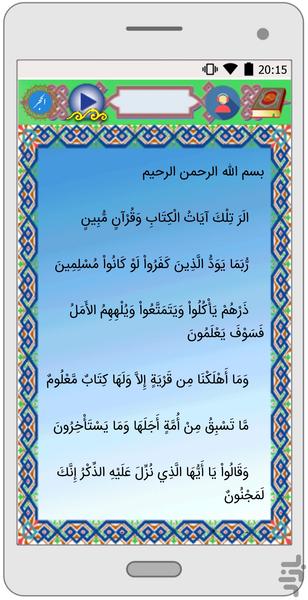 20:15
الحجر
بسم الله الرحمن الرحيم
الَرَ تِلْكَ آيَاتُ الْكِتَابِ وَقُرْآنٍ مُّبِينٍ
رُّبَمَا يَوَدُّ الَّذِينَ كَفَرُواْ لَوْ كَانُواْ مُسْلِمِينَ
ذَرْهُمْ يَأْكُلُواْ وَيَتَمَتَّعُواْ وَيُلْهِهِمُ الأَمَلُ
فَسَوْفَ يَعْلَمُونَ
وَمَا أَهْلَكْنَا مِن قَرْيَةٍ إِلاَّ وَلَهَا كِتَابٌ مَّعْلُومٌ
مَّا تَسْبِقُ مِنْ أُمَّةٍ أَجَلَهَا وَمَا يَسْتَأْخِرُونَ
وَقَالُواْ يَا أَيُّهَا الَّذِي نُزِّلَ عَلَيْهِ الذِّكْرُ إِنَّكَ
لَمَجْنُونٌ
بازار